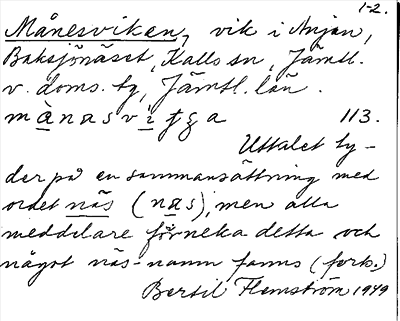 1-2.
Månesviken, vik i Anjan,
Baksjönäset, Kalls sn, Jämtl.
v. doms. tg, Jämtl. län.
mànasvìtga 113.
Uttalet ty-
der på en sammansättning med
ordet näs (nas), men alla
meddelare förneka detta och
något näs-namn fanns (forts.)
Bertil Flemström 1949